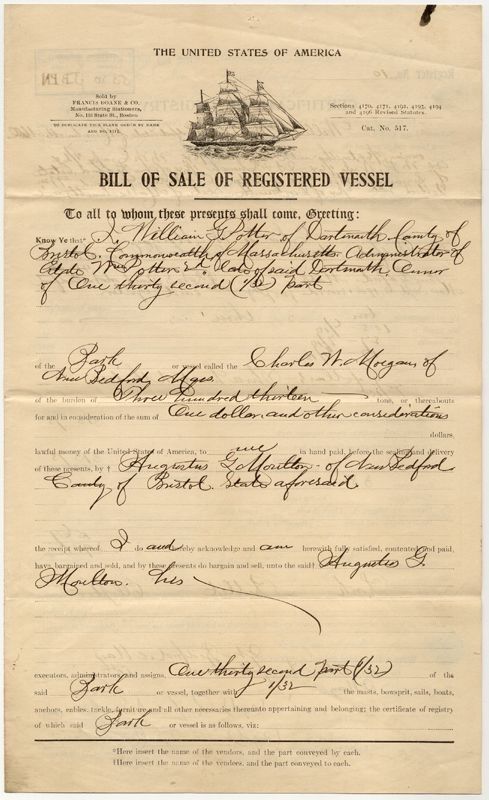 THE UNITED STATES OF AMERICA
Sold by
FRANCIS DOANE & CO.
Manufacturing Stationers,
No. 116 State St., Boston
TO DUPLICATE THIS BLANK ORDER BY NAME
AND NO. 1212.
Sections 4170, 4171, 4192, 4193, 4194
and 4196 Revised Statutes.
Cat. No. 517.
BILL OF SALE OF REGISTERED VESSEL
To all to whom these presents shall come, Greeting:
Know Ye that* I, William G. Potter of Dartmouth County of
Bristol, Commonwealth of Massachusetts Administrator of
Estate Wm Potter 2d. late of said Dartmouth, Owner
of One thirty second (1/32) part
of the Bark or vessel called the Charles W. Morgan, of
New Bedford, Mass.
of the burden of Three hundred thirteen tons, or thereabouts
for and in consideration of the sum of One dollar and other considerations
dollars,
lawful money of the United States of America, to me in hand paid, before the sealing and delivery
of these presents, by † Augustus G. Moulton - of New Bedford
County of Bristol. State aforesaid
the receipt whereof I do and hereby acknowledge and am herewith fully satisfied, contented and paid,
have bargained and sold, and by these presents do bargain and sell, unto the said† Augustus G.
Moulton. his
executors, administrators and assigns, One thirty second part (1/32) of the
said Bark or vessel, together with 1/32 the masts, bowsprit, sails, boats,
anchors, cables, tackle, furniture and all other necessaries thereunto appertaining and belonging; the certificate of registry
of which said Bark or vessel is as follows, viz:
*Here insert the name of the vendors, and the part conveyed by each.
†Here insert the name of the vendees, and the part conveyed to each.